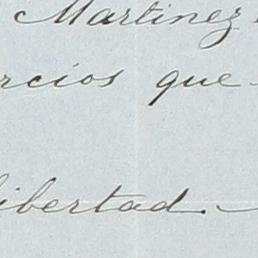 Martinez
rcios que
libertad.